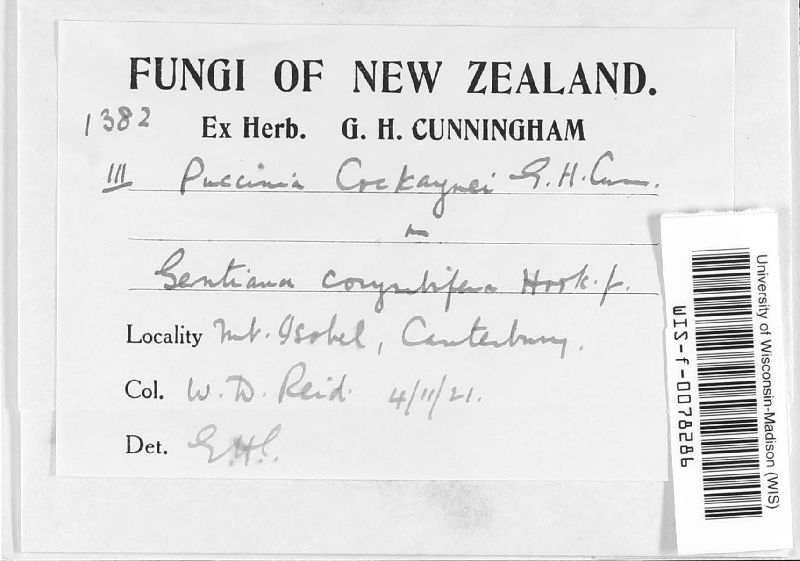 FUNGI OF NEW ZEALAND.
1382 Ex Herb. G. H. CUNNINGHAM
III Puccinia Cockaynei G.H.Cunn.
on
Gentiana corymbifera Hook.f.
Locality Mt. Isobel, Canterbury.
Col. W. D. Reid. 4/11/21.
Det. G.H.C.
University of Wisconsin-Madison (WIS)
WIS-f-0078286